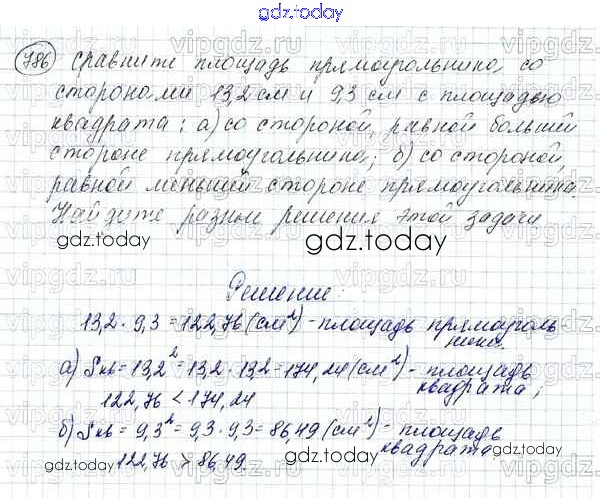 gdz.today
786 Сравните площадь прямоугольника со
сторонами 13,2 см и 9,3 см с площадью
квадрата: а) со стороной, равной большей
стороне прямоугольника; б) со стороной,
равной меньшей стороне прямоугольника.
Найдите разные решения этой задачи
gdz.today
gdz.today
gdz.today
Решение:
13,2 · 9,3 = 122,76 (см²) - площадь прямоуголь
ника.
а) Sкв = 13,2² = 13,2 · 13,2 = 174,24 (см²) - площадь
квадрата;
122,76 < 174,24
б) Sкв = 9,3² = 9,3 · 9,3 = 86,49 (см²) - площадь
квадрата
122,76 > 86,49.
gdz.today
gdz.today